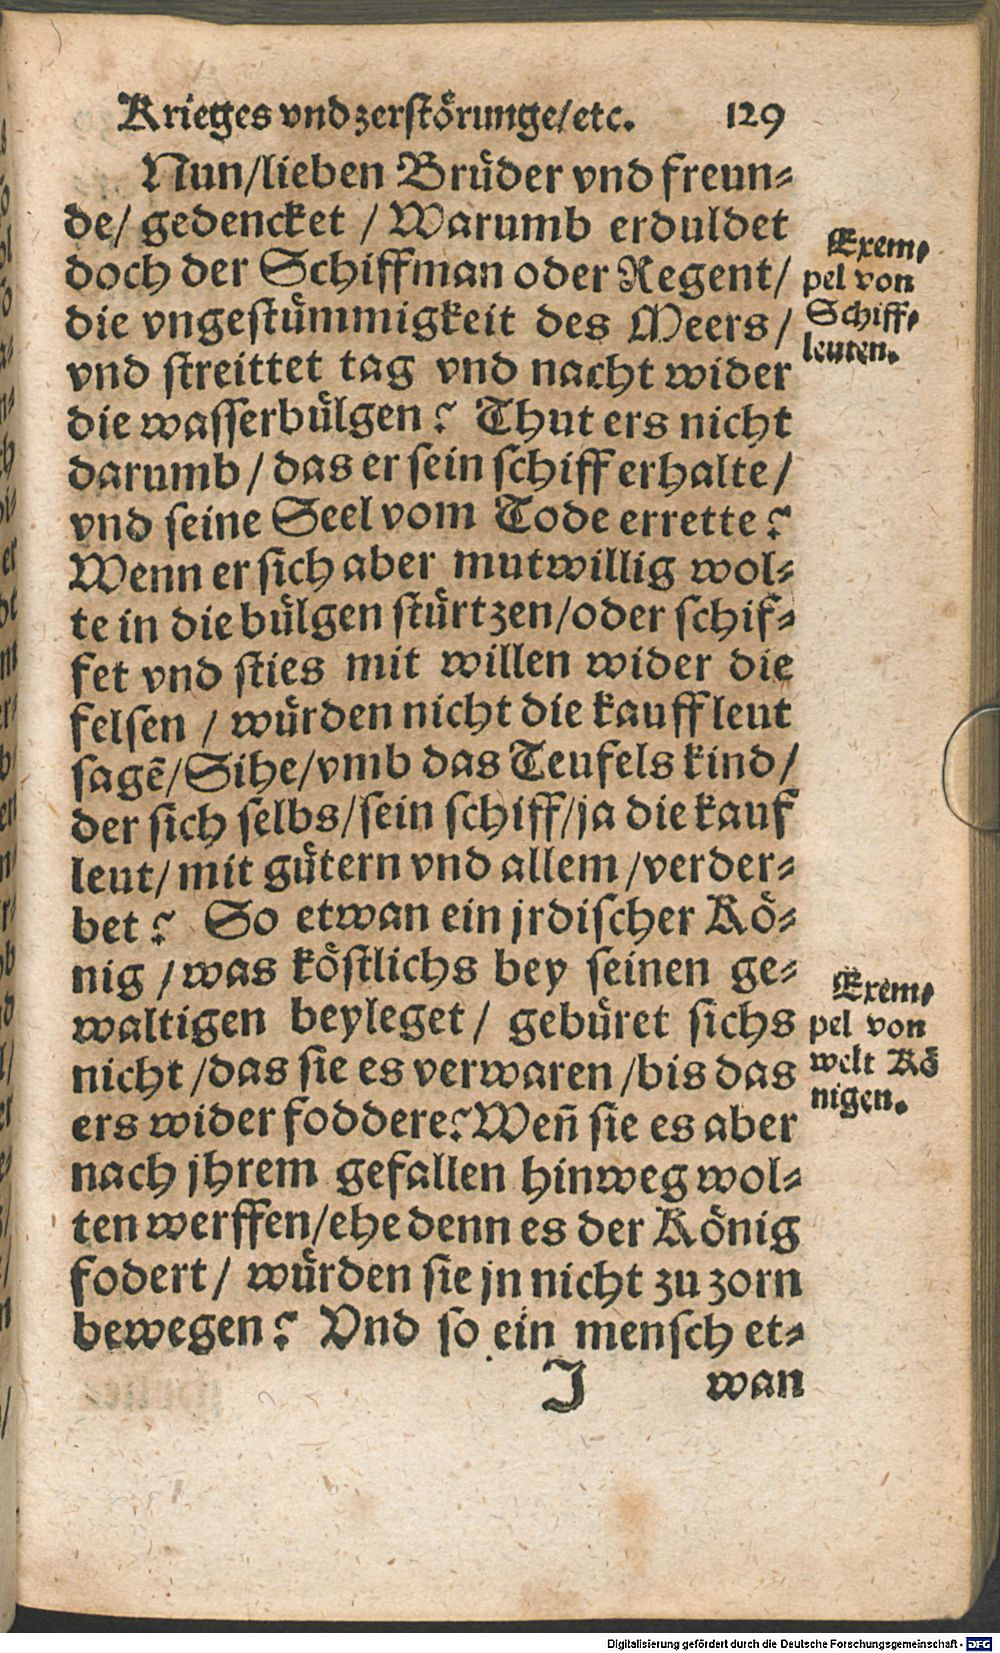 Krieges vnd zerstörunge/etc. 129
Nun/lieben Brüder vnd freun-
de/ gedencket / Warumb erduldet
doch der Schiffman oder Regent/
die vngestümmigkeit des Meers/
vnd streittet tag vnd nacht wider
die wasserbülgen? Thut ers nicht
darumb/ das er sein schiff erhalte/
vnd seine Seel vom Tode errette?
Wenn er sich aber mutwillig wol-
te in die bülgen stürtzen/oder schif-
fet vnd sties mit willen wider die
felsen / würden nicht die kauffleut
sagẽ/Sihe/vmb das Teufels kind/
der sich selbs/sein schiff/ja die kauf
leut/ mit gütern vnd allem /verder-
bet? So etwan ein jrdischer Kö-
nig /was köstlichs bey seinen ge-
waltigen beyleget/ gebüret sichs
nicht/das sie es verwaren/bis das
ers wider foddere? Weñ sie es aber
nach jhrem gefallen hinweg wol-
ten werffen/ehe denn es der König
fodert/ würden sie jn nicht zu zorn
bewegen? Vnd so ein mensch et-
J wan
Exem-
pel von
Schiff-
leuten.
Exem-
pel von
welt Kö
nigen.
Digitalisierung gefördert durch die Deutsche Forschungsgemeinschaft - DFG